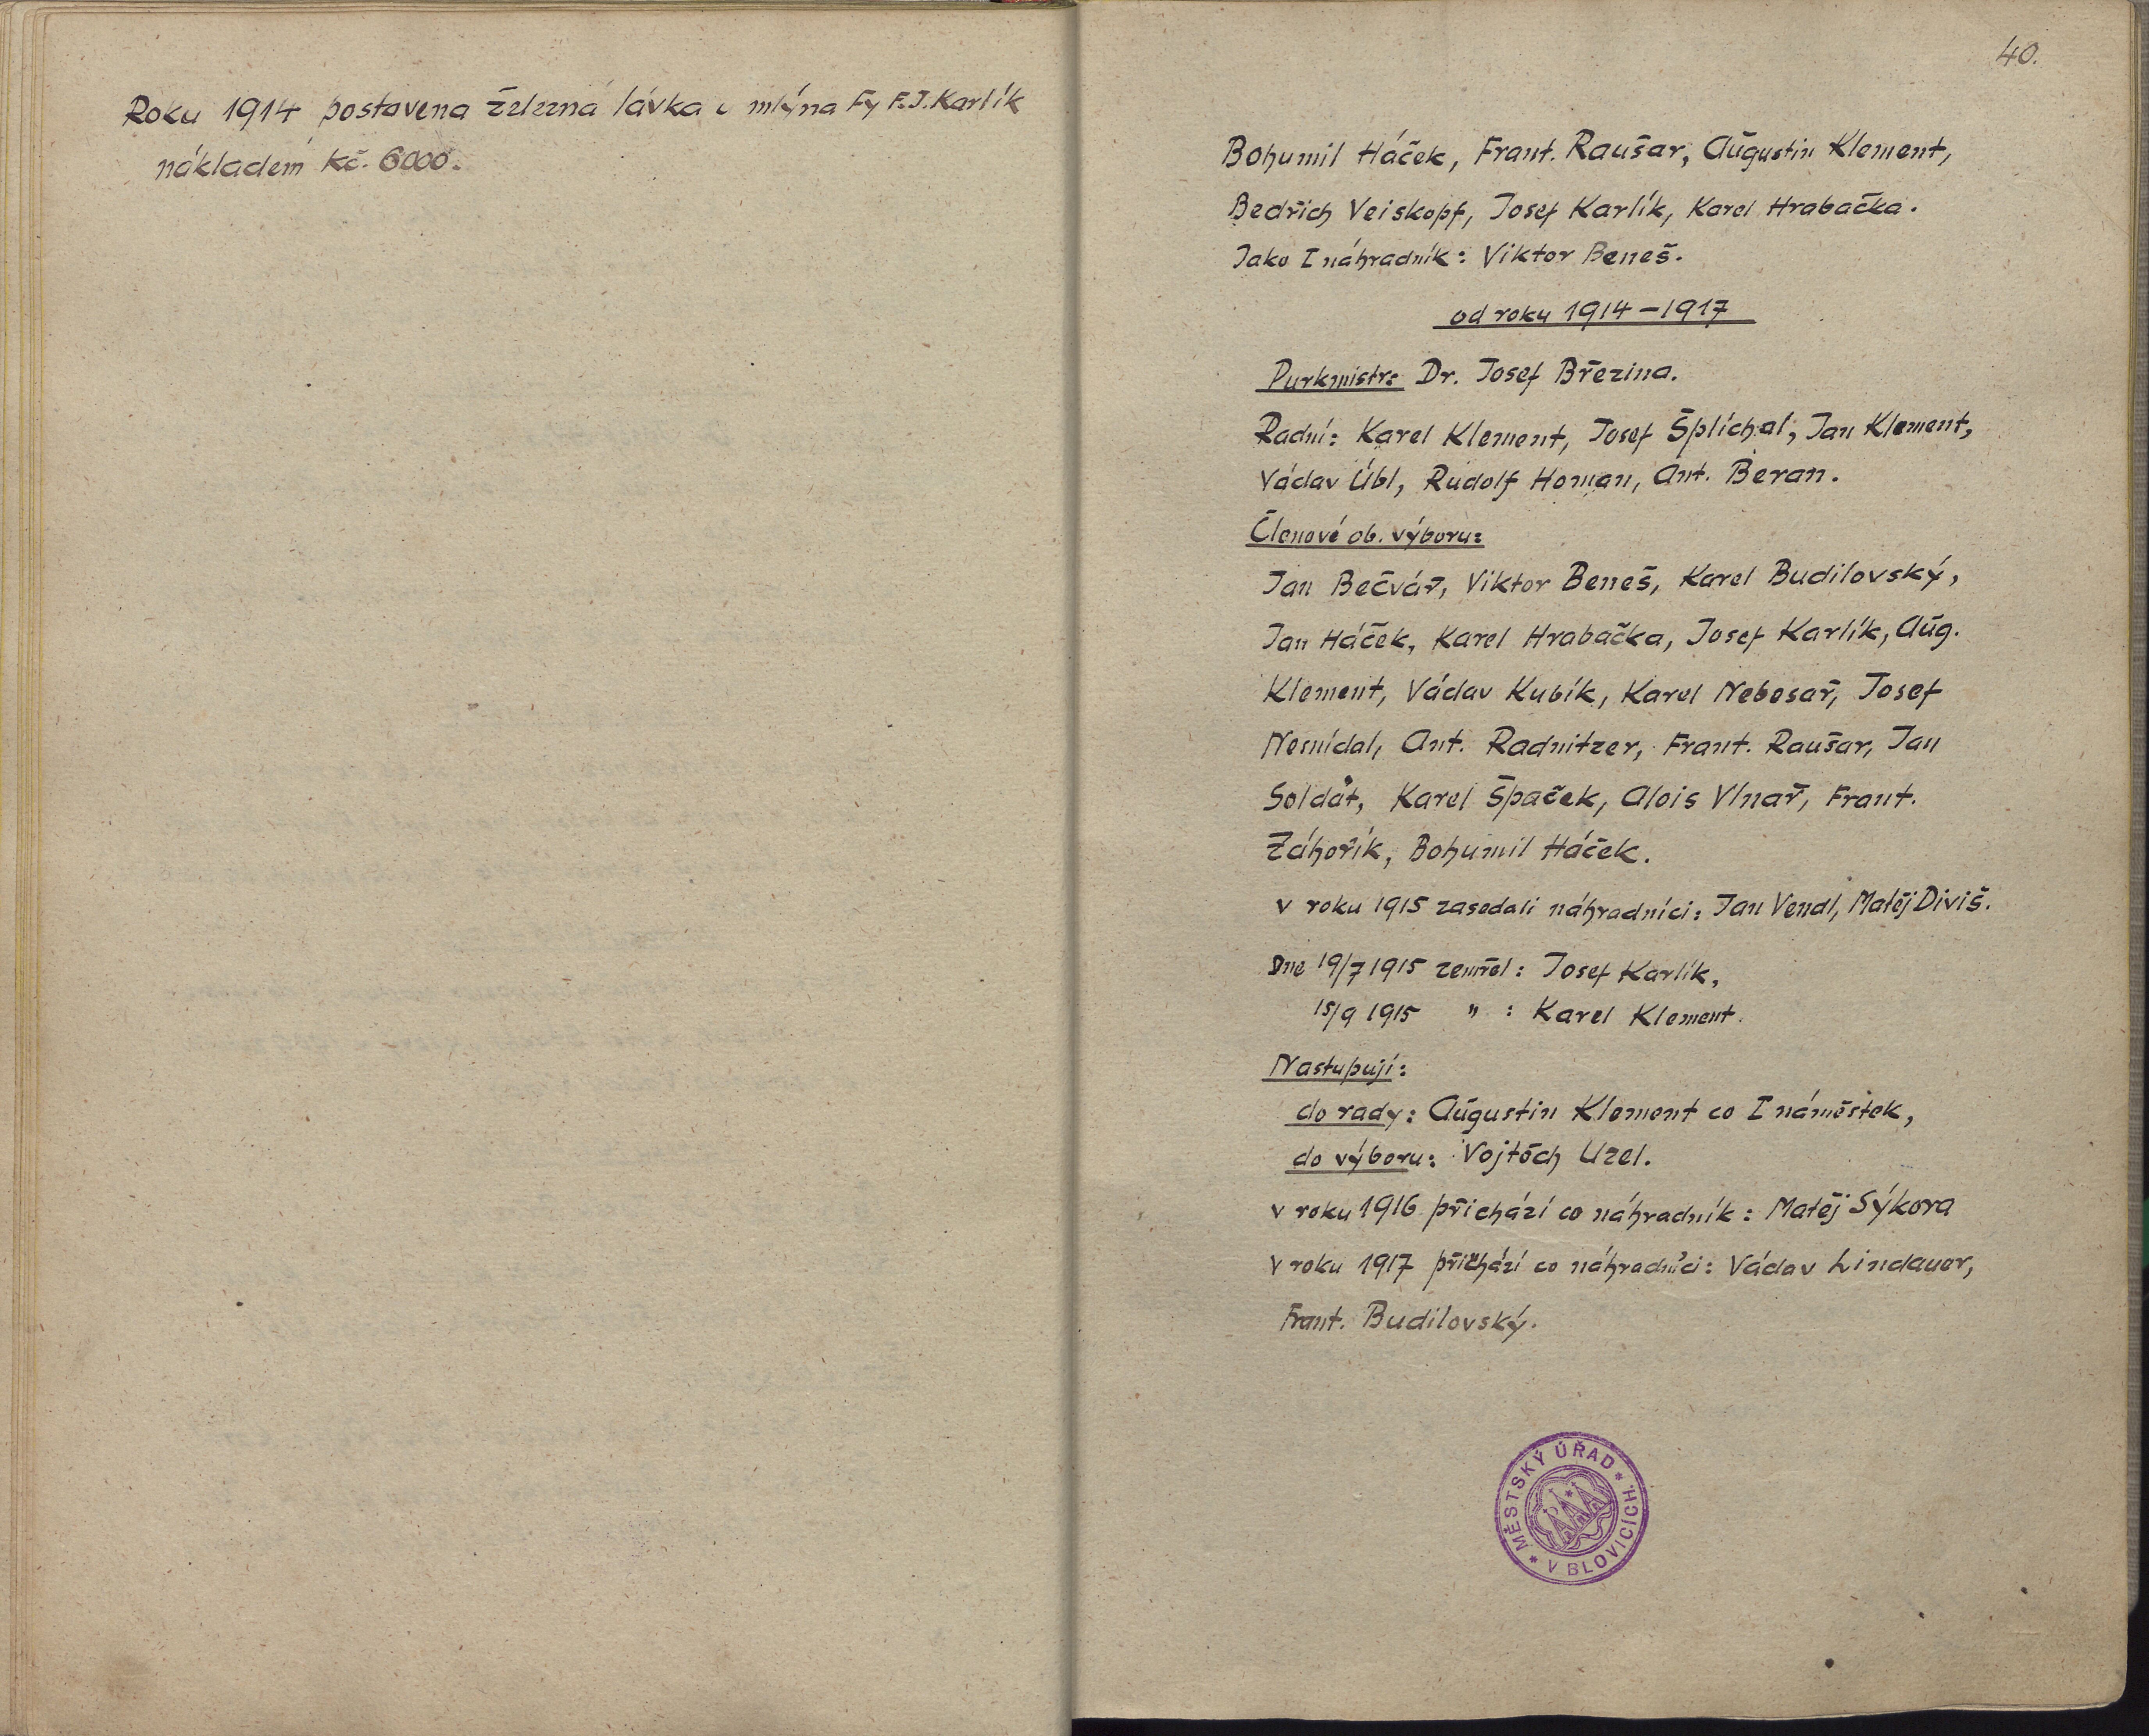 Roku 1914 postavena železná lávka u mlýna Fy F.J. Karlík
nákladem Kč. 6000.
40.
Bohumil Háček, Frant. Raušar, Augustin Klement,
Bedřich Veiskopf, Josef Karlík, Karel Hrabačka.
Jako I náhradník: Viktor Beneš.
od roku 1914 – 1917
Purkmistr: Dr. Josef Březina.
Radní: Karel Klement, Josef Šplíchal, Jan Klement,
Václav Übl, Rudolf Homan, Ant. Beran.
Členové ob. výboru:
Jan Bečvář, Viktor Beneš, Karel Budilovský,
Jan Háček, Karel Hrabačka, Josef Karlík, Aug.
Klement, Václav Kubík, Karel Nebesař, Josef
Nesnídal, Ant. Radnitzer, Frant. Raušar, Jan
Soldát, Karel Špaček, Alois Vlnař, Frant.
Záhořík, Bohumil Háček.
v roku 1915 zasedali náhradníci: Jan Vendl, Matěj Diviš.
Dne 19/7 1915 zemřel: Josef Karlík,
15/9 1915 " : Karel Klement.
Nastupují:
do rady: Augustin Klement co I náměstek,
do výboru: Vojtěch Uzel.
v roku 1916 přichází co náhradník: Matěj Sýkora
v roku 1917 přichází co náhradníci: Václav Lindauer,
Frant. Budilovský.
* MĚSTSKÝ ÚŘAD * V BLOVICÍCH.